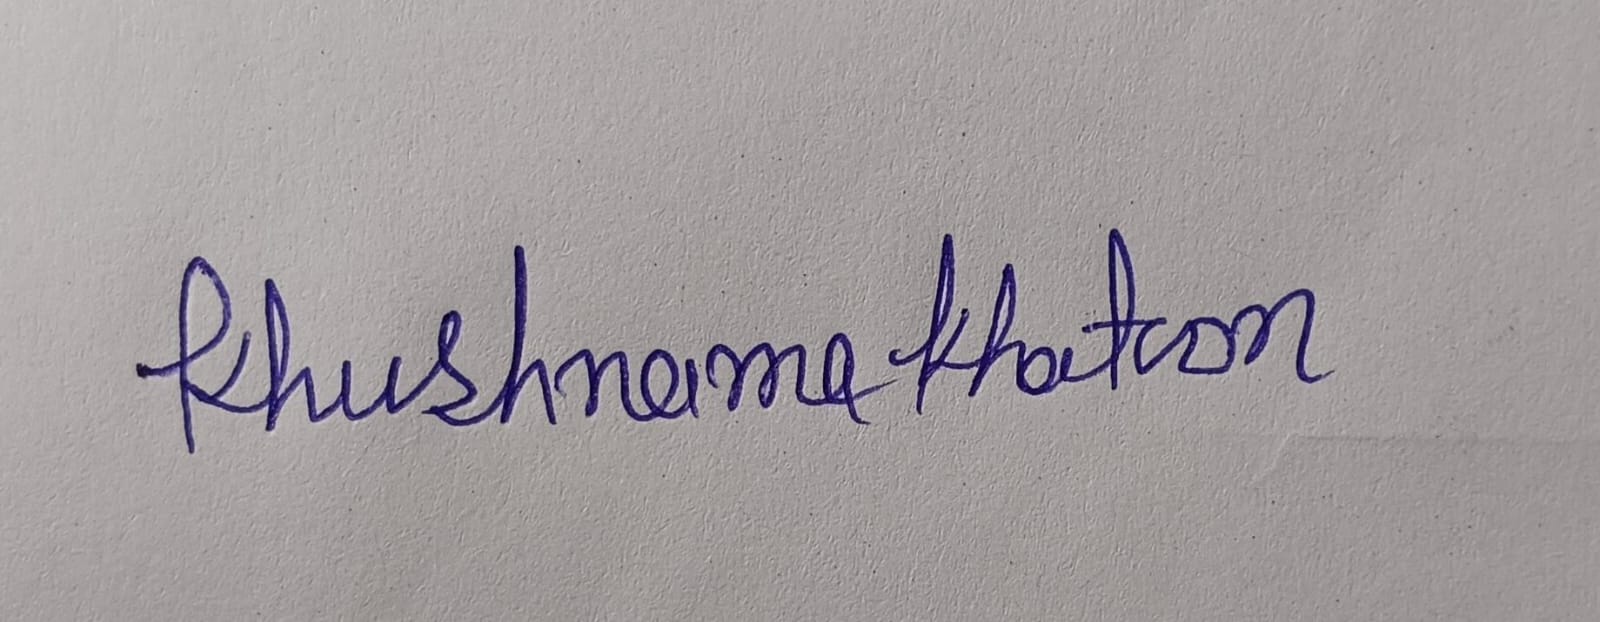 Khushnama Khatoon